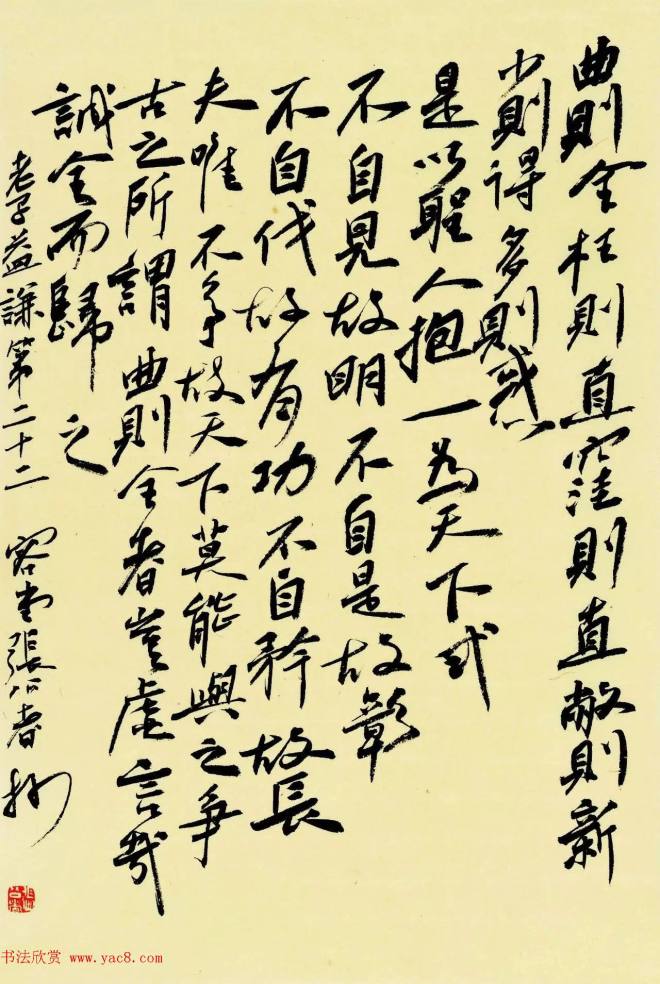 曲則全枉則直窪則直敝則新
少則得多則惑
是以聖人抱一為天下式
不自見故明不自是故彰
不自伐故有功不自矜故長
夫唯不爭故天下莫能與之爭
古之所謂曲則全者豈虛言哉
誠全而歸之
老子益謙第二十二 容堂張公者抄
书法欣赏 www.yac8.com